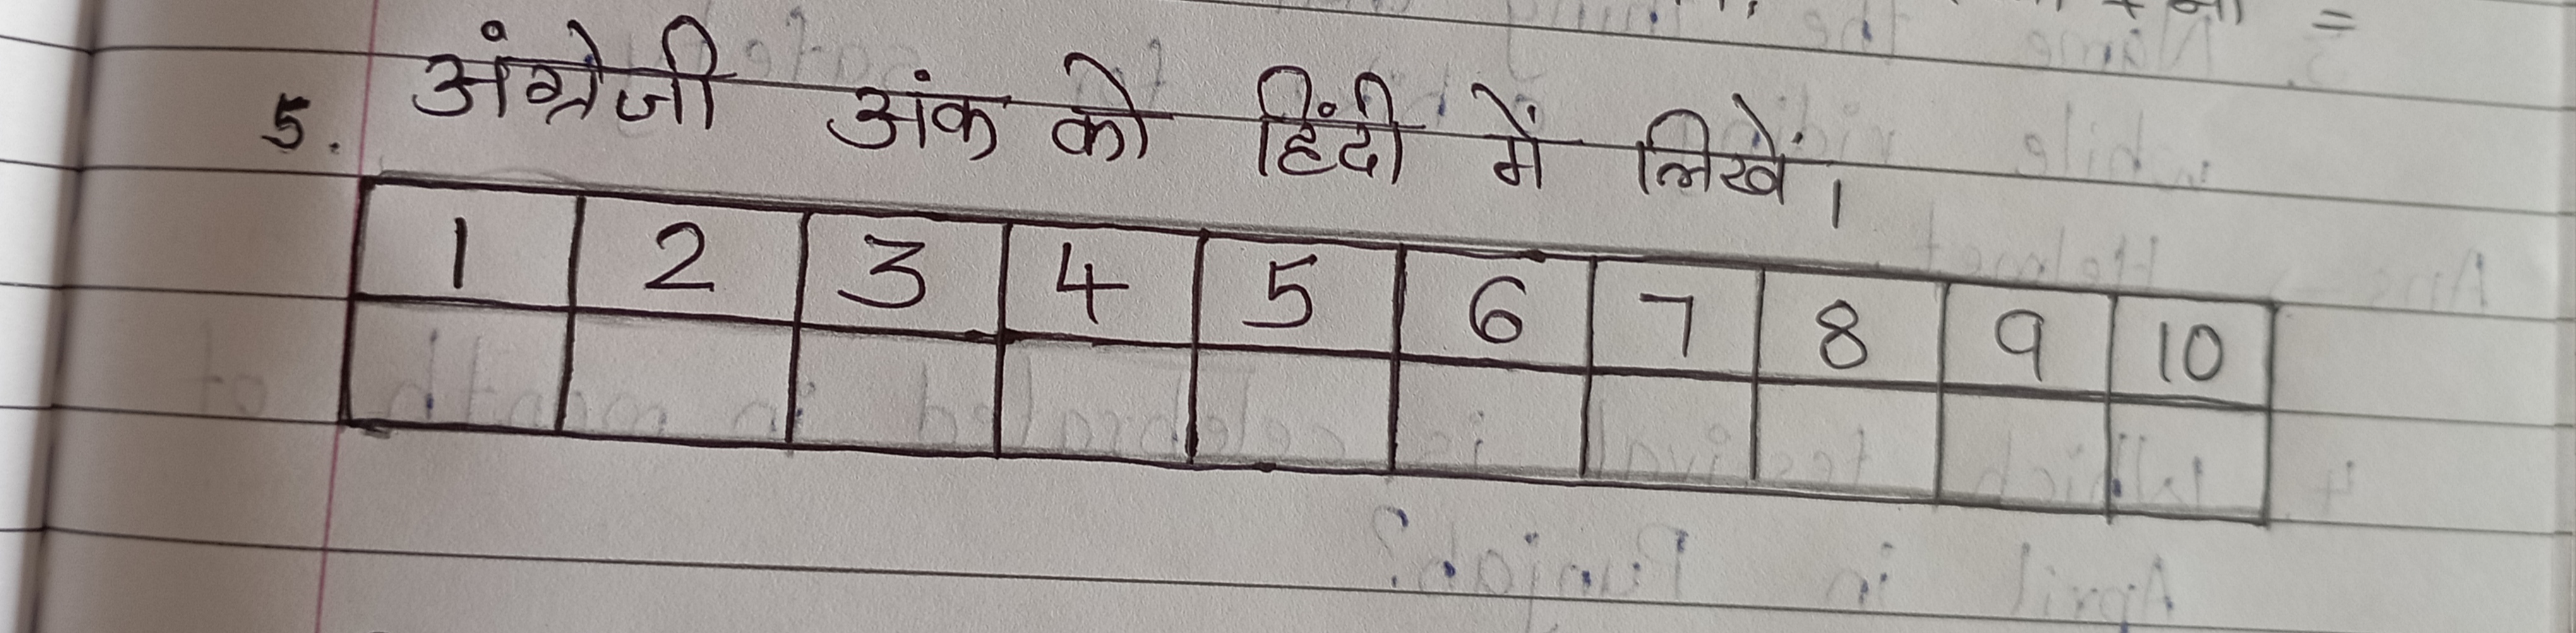 5. अंग्रेजी अंक को हिंदी में लिखें।
1 2 3 4 5 6 7 8 9 10